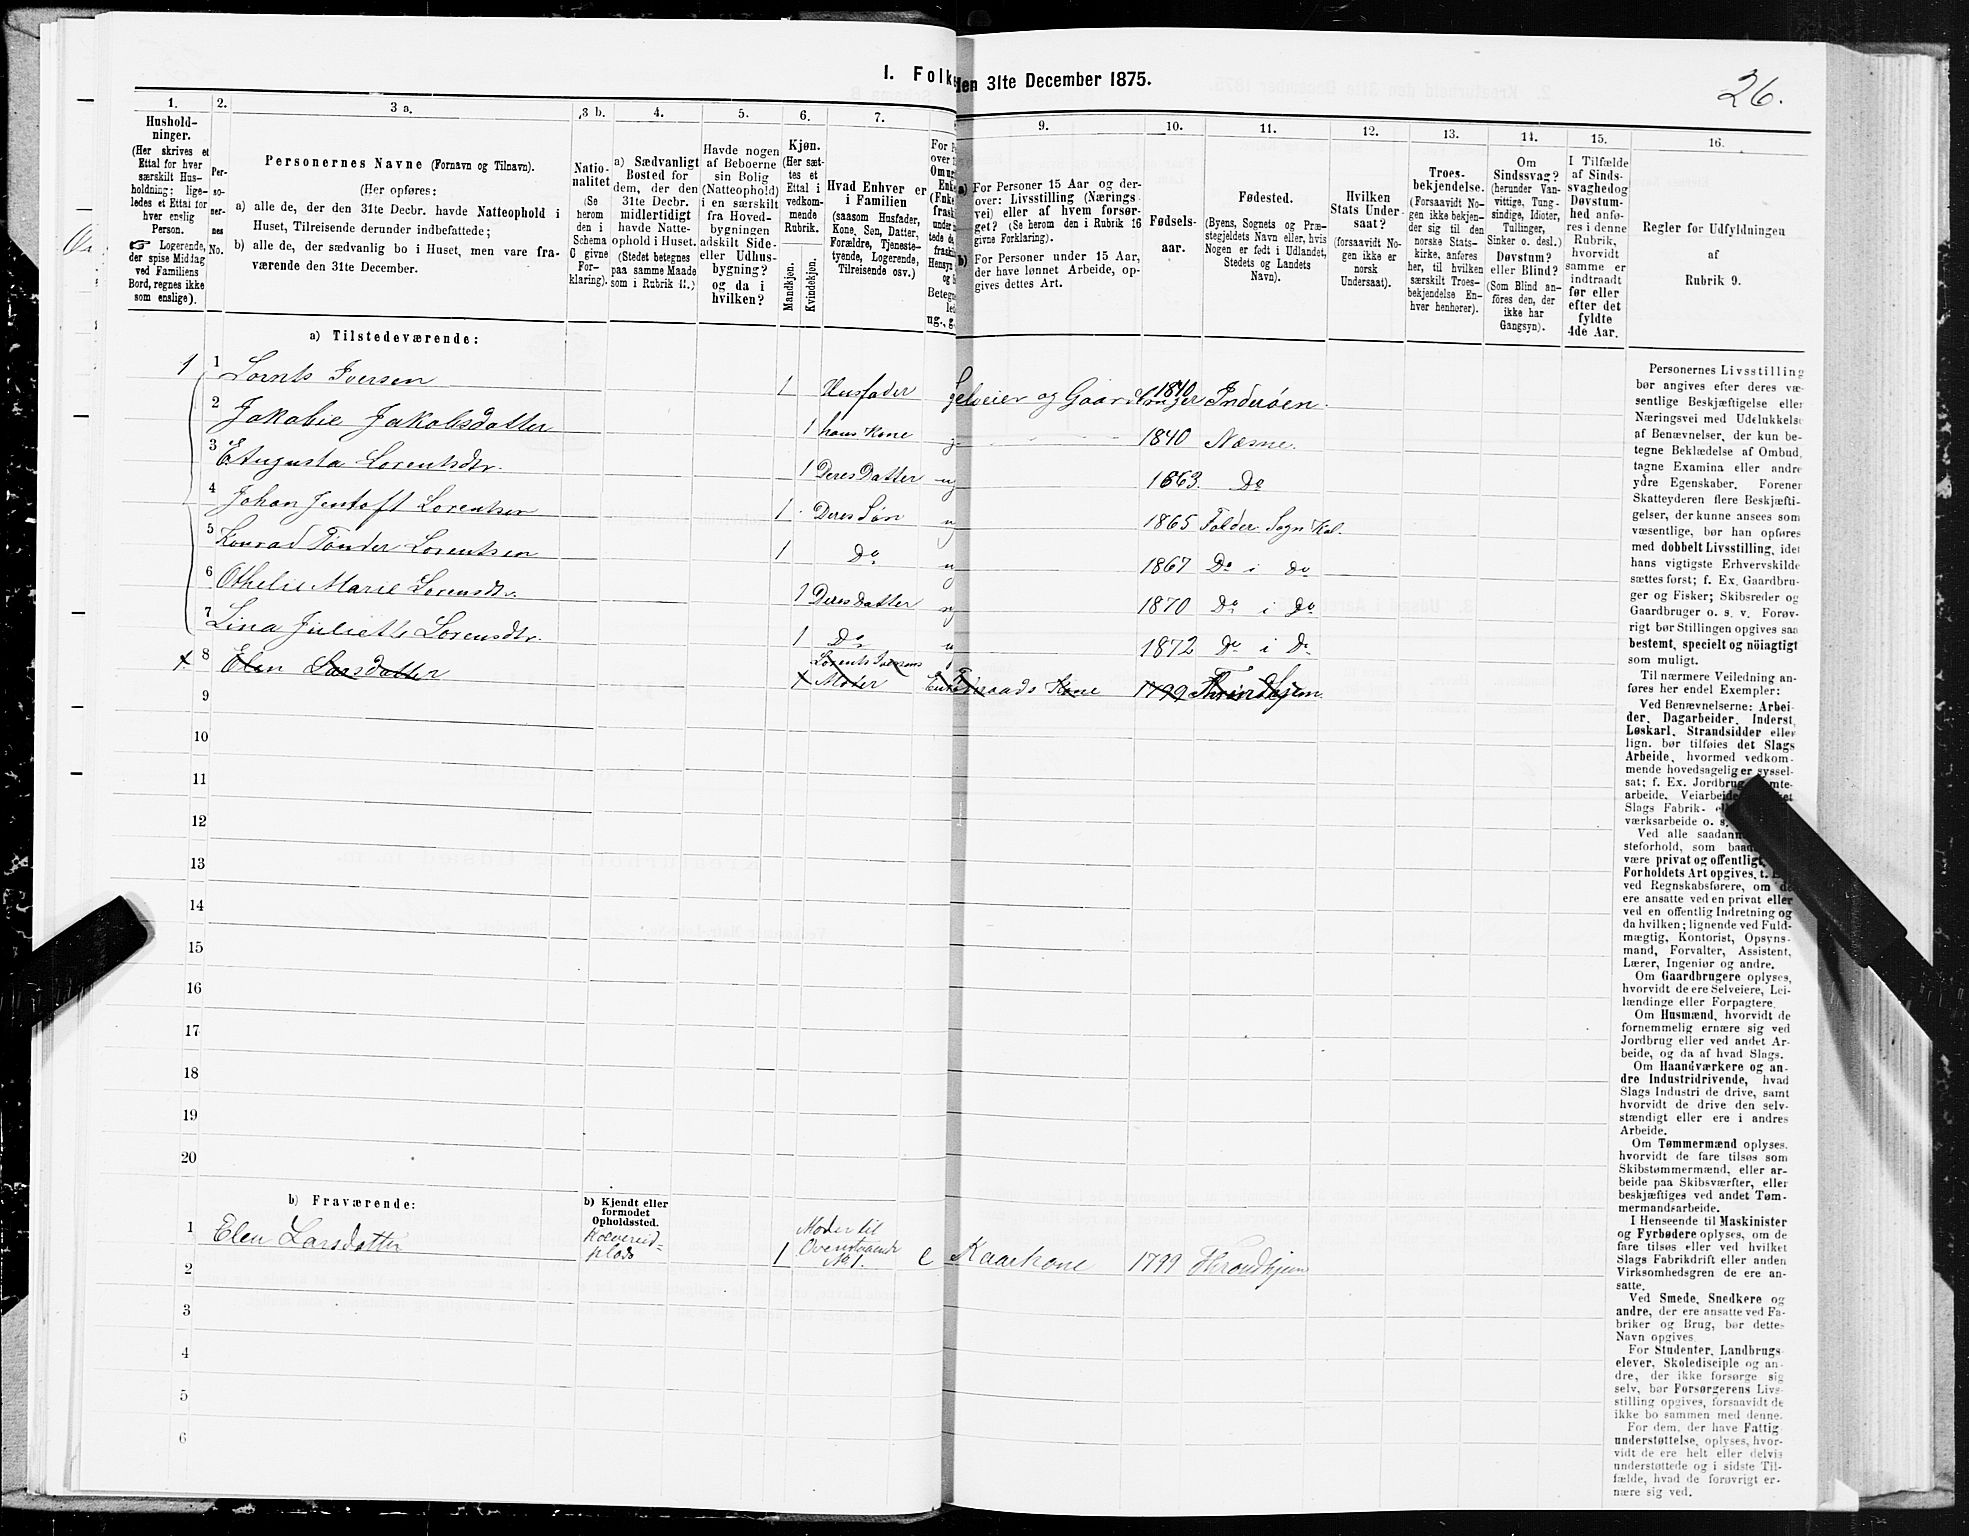 I. Folke
den 31te December 1875.
26.
1.
2.
3 a.
3 b.
4.
5.
6.
7.
9.
10.
11.
12.
13.
14.
15.
16.
Hushold-
ninger.
(Her skrives et
Ettal for hver
særskilt Hus-
holdning; lige-
ledes et Ettal for
hver enslig
Person.
☞ Logerende,
der spise Middag
ved Familiens
Bord, regnes ikke
som enslige).
Per-
so-
ner-
nes
No.
Personernes Navne (Fornavn og Tilnavn).
(Her opføres:
a) alle de, der den 31te Decbr. havde Natteophold i
Huset, Tilreisende derunder indbefattede;
b) alle de, der sædvanlig bo i Huset, men vare fra-
værende den 31te December.
Natio-
nalitet
(Se
herom
den i
Schema
C givne
For-
klaring).
a) Sædvanligt
Bosted for
dem, der den
31te Decbr.
midlertidigt
havde Natte-
ophold i Huset.
(Stedet betegnes
paa samme Maade
som i Rubrik 11.)
Havde nogen
af Beboerne
sin Bolig
(Natteophold)
i en særskilt
fra Hoved-
bygningen
adskilt Side-
eller Udhus-
bygning?
og da i
hvilken?
Kjøn.
(Her sæt-
tes et
Ettal i
vedkom-
mende
Rubrik.
Mandkjøn.
Kvindekjøn.
Hvad Enhver er
i Familien
(saasom Husfader,
Kone, Søn, Datter,
Forældre, Tjeneste-
tyende, Logerende,
Tilreisende osv.)
For P
over
Om ug
Enk
(Enke
frask
under
tede
frask
Hensyn
og
Betegn
ug., g.
a) For Personer 15 Aar og der-
over: Livsstilling (Nærings
vei) eller af hvem forsør-
get? (Se herom den i Rubrik 16
givne Forklaring).
b) For Personer under 15 Aar,
der have lønnet Arbeide, op-
gives dettes Art.
Fødsels-
aar.
Fødested.
(Byens, Sognets og Præ-
stegjeldets Navn eller, hvis
Nogen er født i Udlandet,
Stedets og Landets
Navn).
Hvilken
Stats Under-
saat?
(forsaavidt No-
gen ikke er
norsk
Undersaat).
Troes-
bekjendelse.
(Forsaavidt No-
gen ikke bekjen-
der sig til den
norske Stats-
kirke, anføres
her, til hvilken
særskilt Troes-
bekjendelse En-
hver henhører).
Om
Sindssvag?
(herunder Van-
vittige, Tung-
sindige, Idioter,
Tullinger,
Sinker o. desl.)
Døvstum?
eller Blind?
(Som Blind an-
føres den, der
ikke har
Gangsyn).
I Tilfælde
af Sinds-
svaghed og
Døvstum-
hed anfø-
res i denne
Rubrik,
hvorvidt
samme er
indtraadt
før eller
efter det
fyldte
4de Aar.
Regler for Udfyldningen
af
Rubrik 9.
a) Tilstedeværende:
1 1 Lornts Iversen 1 Husfader g Selveier og Gaardbruger 1840 Inderøen.
2 Jakobie Jakobsdatter 1 hans Kone g 1840 Næsne.
3 E. Augusta Lorentsdtr. 1 Deres Datter ug 1863. Do
4 Johan Jentoft Lorentsen 1 Deres Søn ug 1865 Folder Sogn Kol.
5 Konrad Tønder Lorentsen 1 Do ug 1867 Do i do
6 Othelie Marie Lorensdtr. 1 Deres datter ug 1870 Do i Do
7 Lina Juliette Lorensdtr. 1 Do ug 1872 Do i Do
8 Elen Larsdatter 1 Lorents Iversens Moder Kone 1799 Throndhjem.
9
10
11
12
13
14
15
16
17
18
19
20
b) Fraværende:
b) Kjendt eller
formodet
Opholdssted.
1 Elen Larsdatter Kolvereid-
plads 1 Moder til
Ovenstaaende
No 1. e Kaarkone 1799 Throndhjem
2
3
4
5
6
Personernes Livsstilling
bør angives efter deres væ-
sentlige Beskjæftigelse eller
Næringsvei med Udelukkelse
af Benævnelser, der kun be-
tegne Beklædelse af Ombud,
tagne Examina eller andre
ydre Egenskaber. Forener
Skatteyderen flere Beskjæfti-
gelser, der kunne ansees som
væsentlige, bør han opføres
med dobbelt Livsstilling, idet
hans vigtigste Erhvervskilde
sættes først; f. Ex. Gaardbru-
ger og Fisker; Skibsreder og
Gaardbruger o. s. v. Forøv-
rigt bør Stillingen opgives saa
bestemt, specielt og nöiagtigt
som muligt.
Til nærmere Veiledning an-
føres her endel Exempler:
Ved Benævnelserne: Arbei-
der, Dagarbeider, Inderst,
Løskarl, Strandsidder eller
lign. bør tilføies det Slags
Arbeide, hvormed vedkom-
mende hovedsagelig er syssel-
sat; f. Ex. Jordbrug,
arbeide, Veiarbeide,
Slags Fabrik-
værksarbeide o. s.
Ved alle saadanne
steforhold, som baade
være privat og offentligt,
Forholdets Art opgives, t.
ved Regnskabsførere, om de
ere ansatte ved en privat eller
ved en offentlig Indretning og
da hvilken; lignende ved Fuld-
mægtig, Kontorist, Opsyns-
mand, Forvalter, Assistent,
Lærer, Ingeniør og andre.
Om Gaardbrugere oplyses,
hvorvidt de ere Selveiere, Lei-
lændinge eller Forpagtere.
Om Husmænd, hvorvidt de
fornemmelig ernære sig ved
Jordbrug eller ved andet Ar-
beide, og da af hvad Slags.
Om Haandværkere og an-
dre Industridrivende, hvad
Slags Industri de drive, samt
hvorvidt de drive den selv-
stændigt eller ere i andres
Arbeide.
Om Tømmermænd oplyses,
hvorvidt de fare tilsøs som
Skibstømmermænd, eller ar-
beide paa Skibsværfter, eller
beskjæftiges ved andet Tøm-
mermandsarbeide.
I Henseende til Maskinister
og Fyrbødere oplyses, om de
fare tilsøs eller ved hvilket
Slags Fabrikdrift eller anden
Virksomhedsgren de ere an-
satte.
Ved Smede, Snedkere og
andre, der ere ansatte ved Fa-
briker og Brug, bør dettes
Navn opgives.
For Studenter, Landbrugs-
elever, Skoledisciple og an-
dre, der ikke forsørge sig
selv, bør Forsørgerens Livs-
stilling opgives, forsaavidt de
ikke bo sammen med denne.
For dem, der have Fattig
understøttelse, oplyses, hvor-
vidt de ere helt eller delvis
understøttede og i sidste Til-
fælde, hvad de forøvrigt er-
nære sig ved.